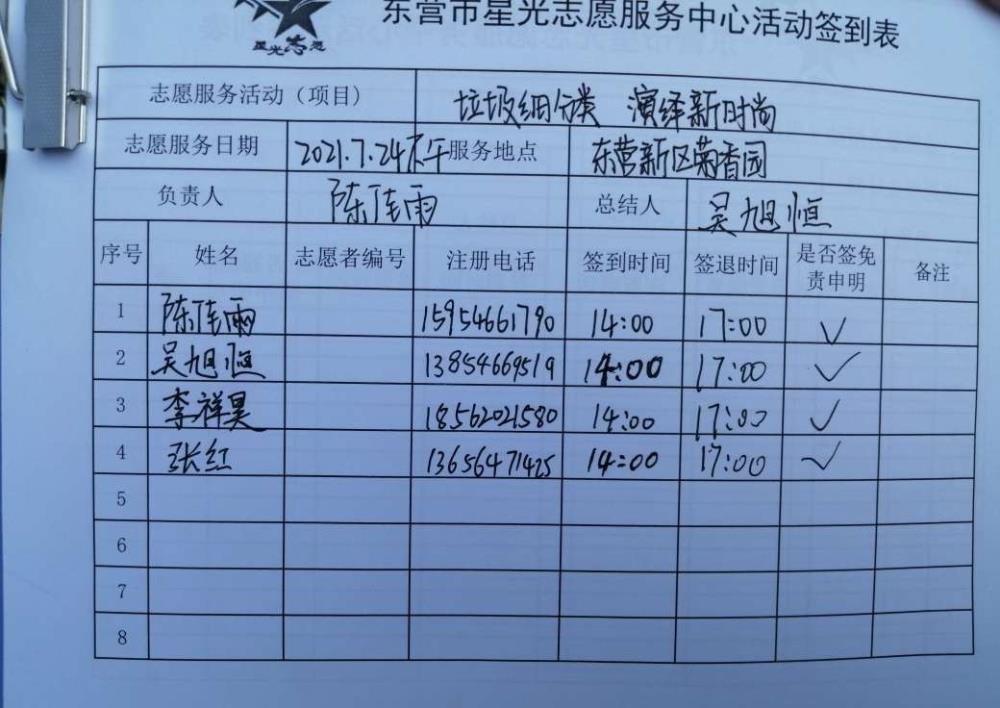 东营市星光志愿服务中心活动签到表
星光志愿
志愿服务活动（项目） 垃圾细分类 演绎新时尚
志愿服务日期 2021.7.24下午 服务地点 东营新区菊香园
负责人 陈佳雨 总结人 吴旭恒
序号 姓名 志愿者编号 注册电话 签到时间 签退时间 是否签免责申明 备注
1 陈佳雨 15954661790 14:00 17:00 ✓
2 吴旭恒 13854669519 14:00 17:00 ✓
3 李祥昊 18562021580 14:00 17:00 ✓
4 张红 13656471425 14:00 17:00 ✓
5
6
7
8